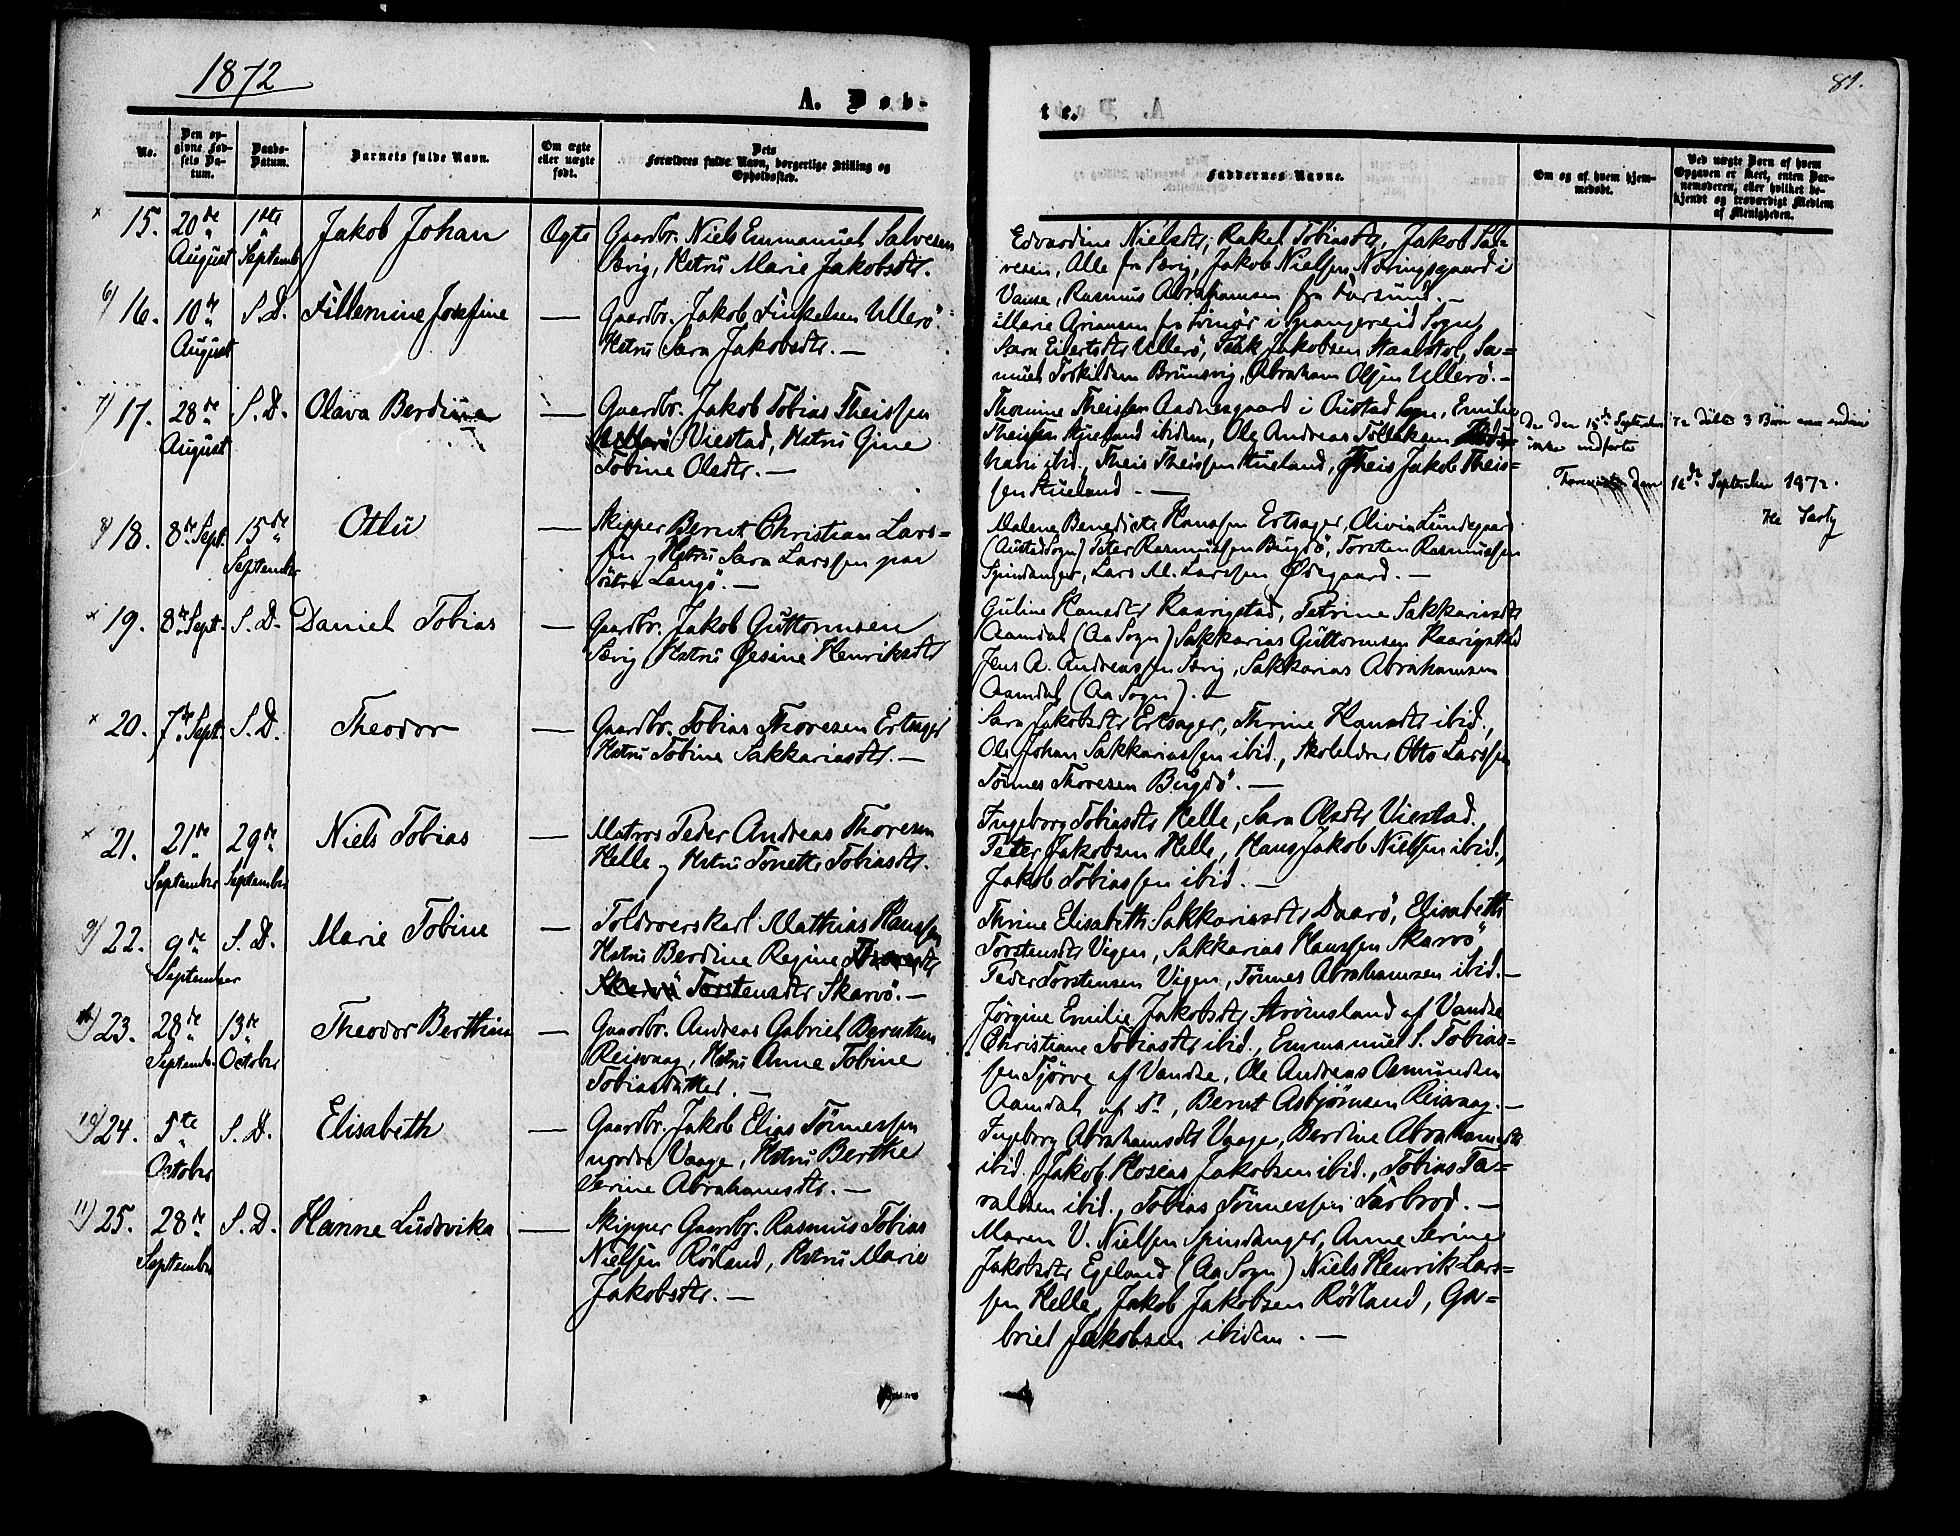 1872
81.
A. Døb-
te.
No.
Den op-
givne Fød-
sels Da-
tum.
Daabs-
Datum.
Barnets fulde Navn.
Om ægte
eller uægte
født.
Dets
Forældres fulde Navn, borgerlige Stilling og
Opholdssted.
Faddernes Navne.
Om og af hvem hjem-
medøbt.
Ved uægte Børn af hvem
Opgaven er skeet, enten Bar-
nemoderen, eller hvilket be-
kjendt og troværdigt Medlem
af Menigheden.
× 15. 20de August 1ste Septemb. Jakob Johan Ægte
Gaardbr. Niels Emmanuel Salvesen
Særig, Hstrü Marie Jakobsdtr.
Edvardine Nielsdtr, Rakel Tobiasdtr, Jakob Sal-
vesen, Alle fra Særig, Jakob Nielsen Næringsgaard i
Vanse, Rasmus Abrahamsen fra Farsund. —
6) 16. 10de August S. D. Fillemine Josefine —
Gaardbr. Jakob Finkelsen Ullerö
Hstrü Sara Jakobsdtr. —
Marie Ariansen fra i Spangereid Sogn,
Sara Eilertsdtr Ullerö, Jakobsen Staalstöl, Sa=
muel Torkildsen Brünsvig, Abraham Olsen Ullerö. —
7) 17. 28de August S. D. Olava Berdine —
Gaardbr. Jakob Tobias Theissen
Viestad, Hstrü Gine
Tobine Olsdtr. —
Thomine Theissen Aadnesgaard i Austad Sogn, Emilie
Theissen Stueland ibidem, Ole Andreas Tollaksen
ibid., Theis Theissen Stueland, Theis Jakob Theis=
sen Stueland. —
De den 15de September 72 døbte 3 Børn ere endnu
ikke indførte
den 16de September 1872.
8) 18. 8de Sept. 15de September Otlü —
Skipper Bernt Christian Lars=
sen og Hstrü Sara Larssen paa
östre Langö. —
Malene Benedicte Hanssen Ertsager, Olivia Lundegaard
(Austad Sogn) Peter Rasmussen Bugdö, Torsten Rasmussen
Spindanger, Lars M. Larssen Ødegaard. —
× 19. 8de Sept. S. D. Daniel Tobias —
Gaardbr. Jakob Guttormsen
Særig Hstrü Gesine Henriksdtr
Guline Hansdtr Kaarigstad, Petrine Sakkariasdtr
Aamdal (Aa Sogn) Sakkarias Guttormsen Kaarigstad
Jens A. Andreassen Særig, Sakkarias Abrahamsen
Aamdal (Aa Sogn). —
× 20. 7de Sept. S. D. Theodor —
Gaardbr. Tobias Thoresen Ertsager
Hstrü Tobine Sakkariasdtr. —
Sara Jakobsdtr Ertsager, Thrine Hansdtr ibid.,
Ole Johan Sakkariassen ibid., Skoleldrer Otto Larssen
Tönnes Thoresen Bugdö. —
× 21. 21de September 29de September Niels Tobias —
Matros Peder Andreas Thoresen
Helle og Hstrü Tonette Tobiasdtr.
Ingeborg Tobiasdtr Helle, Sara Olsdtr Viestad,
Peter Jakobsen Helle, Hans Jakob Nielsen ibid.,
Jakob Tobiassen ibid. —
9) 22. 9de September S. D. Marie Tobine —
Toldroerskarl Mathias Hanssen
Hstrü Berdine Regine
Skarvö Torstensdtr Skarvö. —
Thrine Elisabeth Sakkariasdtr Daarö, Elisabeth
Torstensdtr Vigen, Sakkarias Hanssen Skarvö
Peder Torstensen Vigen, Tönnes Abrahamsen ibid. —
23. 28de Septemb. 13de October Theodor Berthin —
Gaardbr. Andreas Gabriel Berntsen
Reisvaag, Hstrü Anne Tobine
Tobiasdatter. —
Jörgine Emilie Jakobsdtr Strömsland af Vandse
Christiane Tobiasdtr ibid., Emmanuel S. Tobias=
sen Tjörve af Vandse, Ole Andreas Osmundsen
Aamdal af do, Bernt Asbjörnsen Reisvaag. —
10) 24. 5te October S. D. Elisabeth —
Gaardbr. Jakob Elias Tönnessen
nordre Vaage, Hstrü Berthe
Serine Abrahamsdtr. —
Ingeborg Abrahamsdtr Vaage, Berdine Abrahamsdtr
ibid., Jakob Hoseas Jakobsen ibid., Tobias Ta=
raldsen ibid., Tobias Tönnessen Farbrod. —
11) 25. 28de September S. D. Hanne Ludovika —
Skipper Gaardbr. Rasmus Tobias
Nielsen Rödland, Hstrü Marie
Jakobsdtr. —
Maren V. Nielsen Spindanger, Anne Serine
Jakobsdtr Egeland (Aa Sogn) Niels Henrik Lars=
sen Helle, Jakob Jakobsen Rödland, Ga=
briel Jakobsen ibidem. —